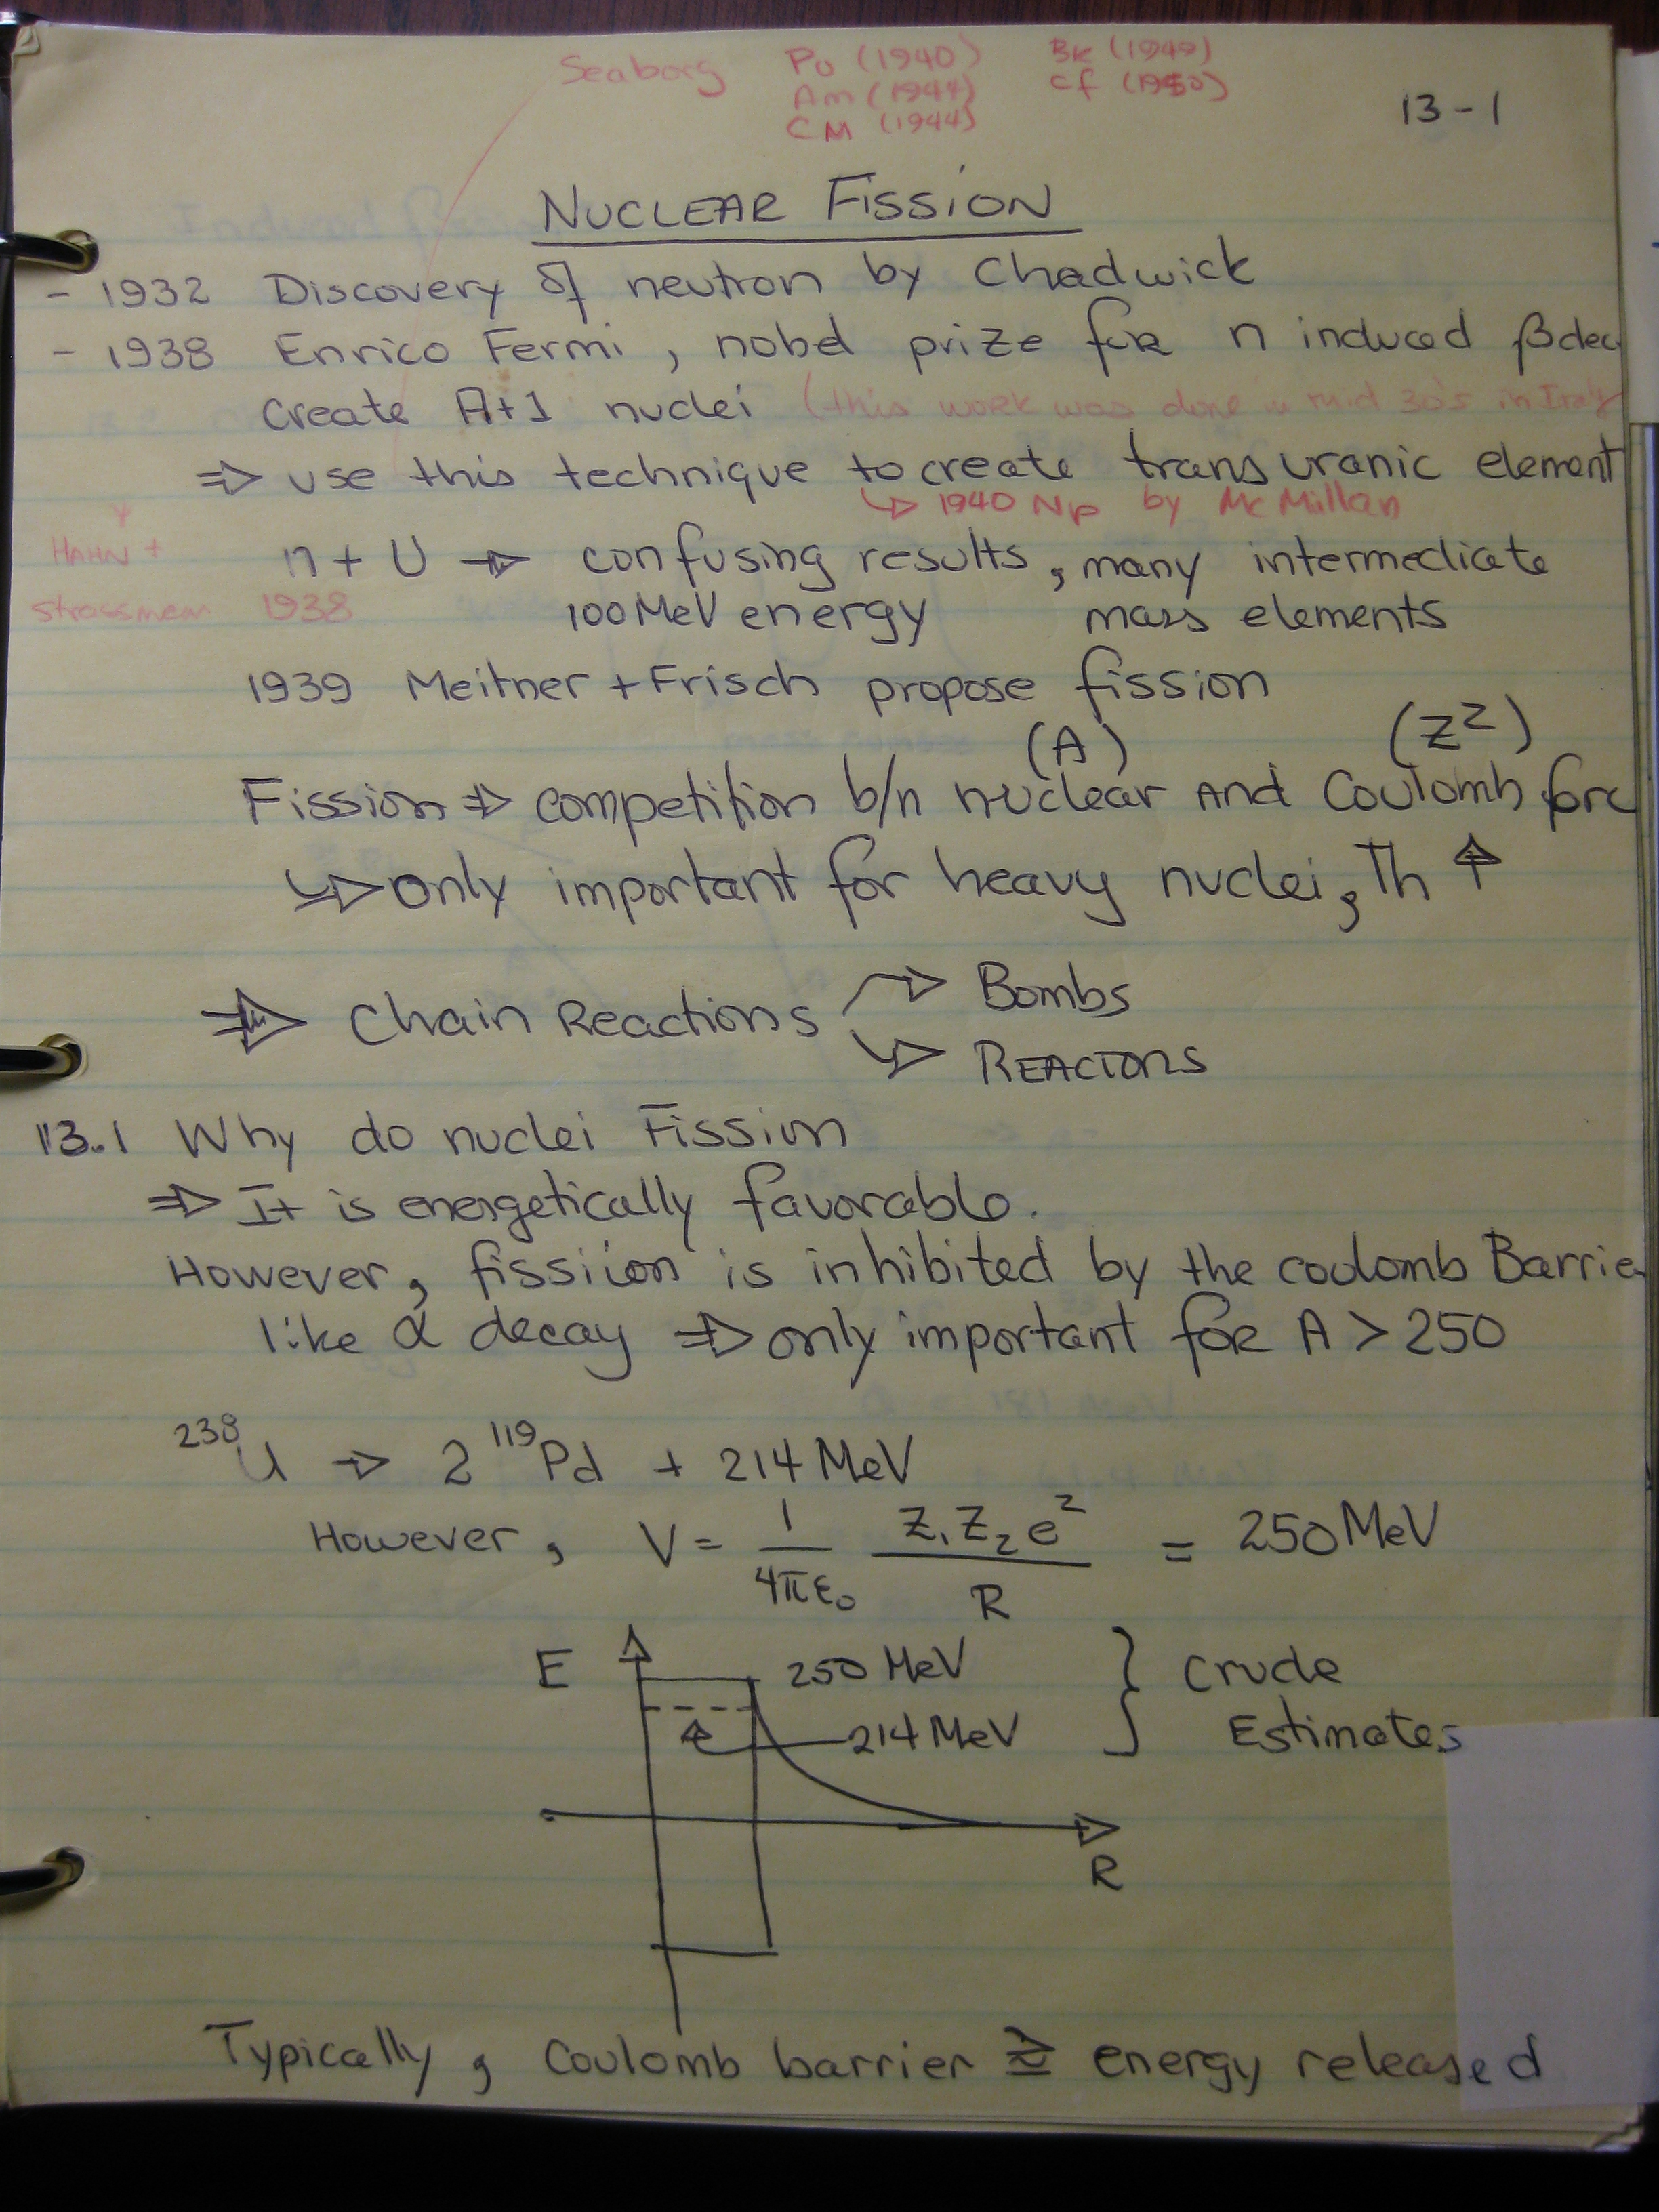 Seaborg Pu (1940) Bk (1949)
Am (1944) Cf (1950)
CM (1944)
13-1
NUCLEAR FISSION
- 1932 Discovery of neutron by Chadwick
- 1938 Enrico Fermi, nobel prize for n induced β dec
create A+1 nuclei (this work was done in mid 30's in Italy
⇒ use this technique to create trans uranic element
↳ 1940 Np by McMillan
HAHN + n + U → confusing results, many intermediate
Strassmen 1938 100 MeV energy mass elements
1939 Meitner + Frisch propose fission
(A) (Z²)
Fission ⇒ competition b/n nuclear And Coulomb forc
↳ only important for heavy nuclei, Th ↑
⇒ Chain Reactions → Bombs
→ REACTORS
13.1 Why do nuclei Fission
⇒ It is energetically favorable.
However, fissiion is inhibited by the coulomb Barrie
like α decay ⇒ only important for A > 250
²³⁸U → 2 ¹¹⁹Pd + 214 MeV
However, V = 1/4πε₀ Z₁Z₂e²/R = 250 MeV
E 250 MeV } Crude
214 MeV Estimates
R
Typically, Coulomb barrier ≳ energy released